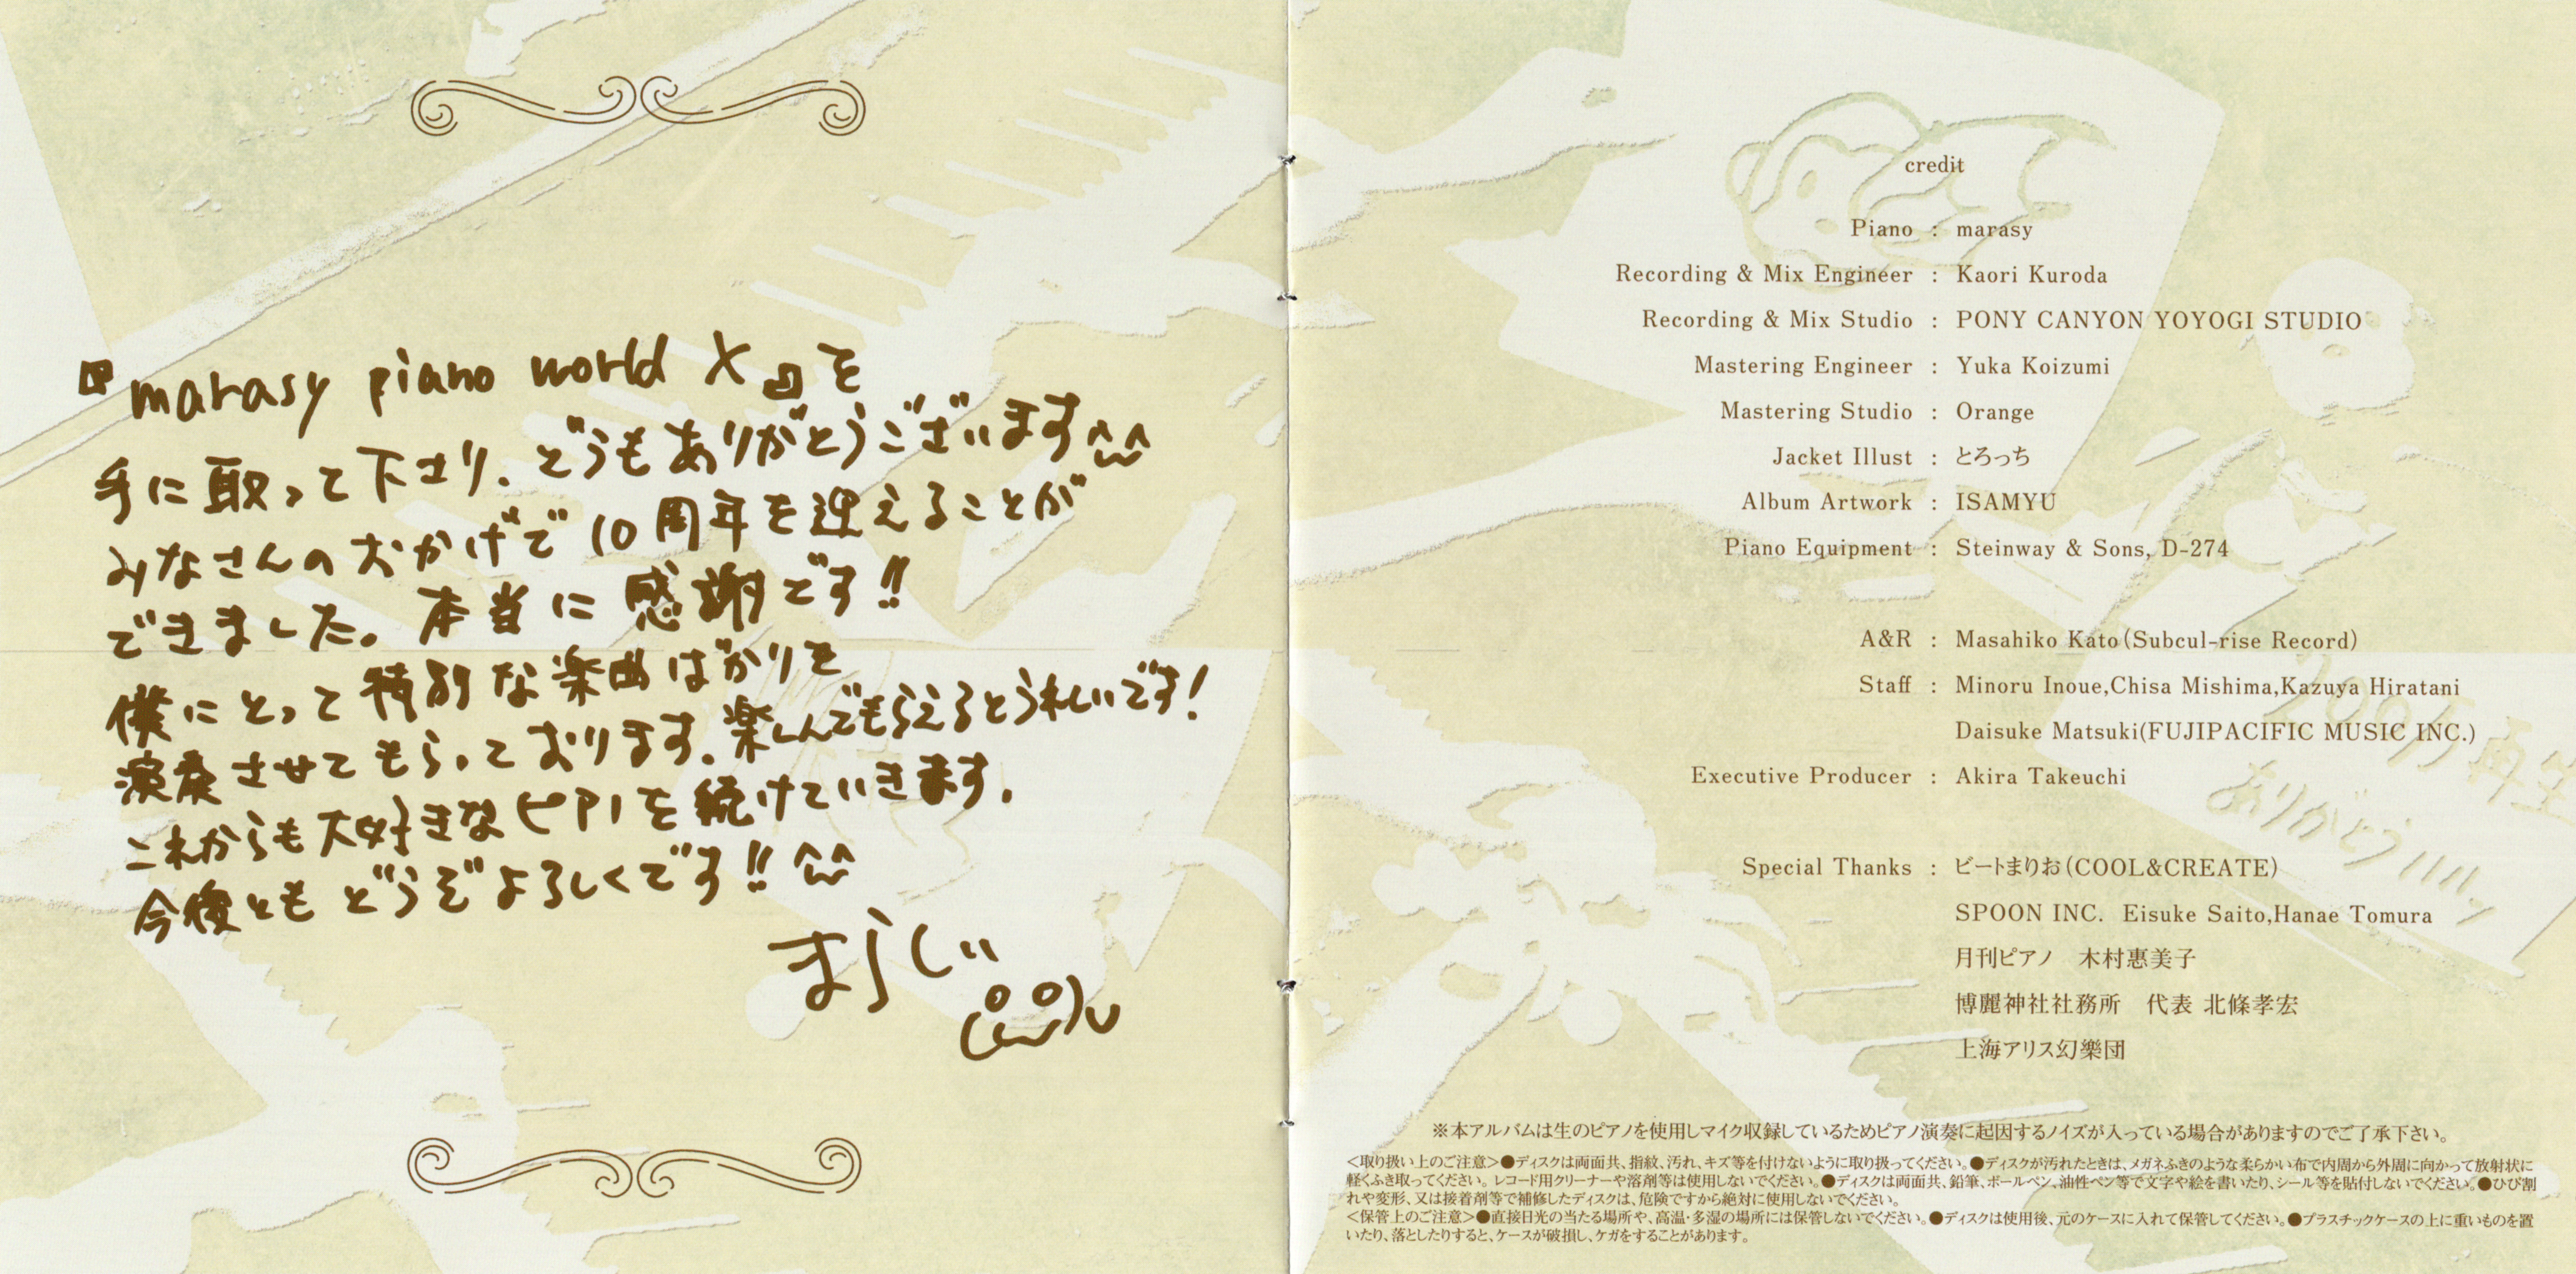 『marasy piano world X』を
手に取って下さり、どうもありがとうございます^ω^
みなさんのおかげで10周年を迎えることが
できました。本当に感謝です!!
僕にとって特別な楽曲ばかりを
演奏させてもらっております。楽しんでもらえるとうれしいです!
これからも大好きなピアノを続けていきます。
今後ともどうぞよろしくです!! ^ω^
まらしぃ
credit
Piano : marasy
Recording & Mix Engineer : Kaori Kuroda
Recording & Mix Studio : PONY CANYON YOYOGI STUDIO
Mastering Engineer : Yuka Koizumi
Mastering Studio : Orange
Jacket Illust : とろっち
Album Artwork : ISAMYU
Piano Equipment : Steinway & Sons, D-274
A&R : Masahiko Kato(Subcul-rise Record)
Staff : Minoru Inoue,Chisa Mishima,Kazuya Hiratani
Daisuke Matsuki(FUJIPACIFIC MUSIC INC.)
Executive Producer : Akira Takeuchi
Special Thanks : ビートまりお(COOL&CREATE)
SPOON INC. Eisuke Saito,Hanae Tomura
月刊ピアノ 木村惠美子
博麗神社社務所 代表 北條孝宏
上海アリス幻樂団
再生
ありがとう
※本アルバムは生のピアノを使用しマイク収録しているためピアノ演奏に起因するノイズが入っている場合がありますのでご了承下さい。
<取り扱い上のご注意>●ディスクは両面共、指紋、汚れ、キズ等を付けないように取り扱ってください。●ディスクが汚れたときは、メガネふきのような柔らかい布で内周から外周に向かって放射状に
軽くふき取ってください。レコード用クリーナーや溶剤等は使用しないでください。●ディスクは両面共、鉛筆、ボールペン、油性ペン等で文字や絵を書いたり、シール等を貼付しないでください。●ひび割
れや変形、又は接着剤等で補修したディスクは、危険ですから絶対に使用しないでください。
<保管上のご注意>●直接日光の当たる場所や、高温・多湿の場所には保管しないでください。●ディスクは使用後、元のケースに入れて保管してください。●プラスチックケースの上に重いものを置
いたり、落としたりすると、ケースが破損し、ケガをすることがあります。